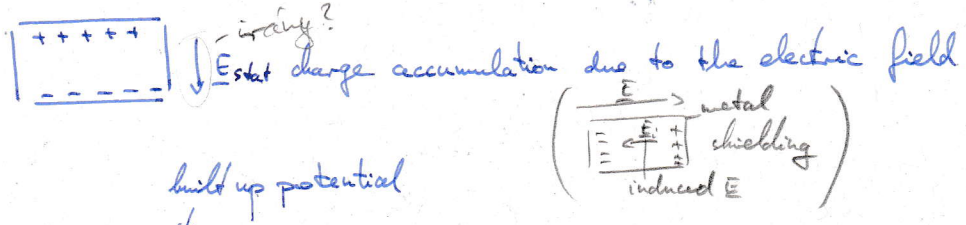 - irány?
+ + + + +
E stat charge accumulation due to the electric field
- - - - -
E
metal
- Ei +
shielding
induced E
built up potential